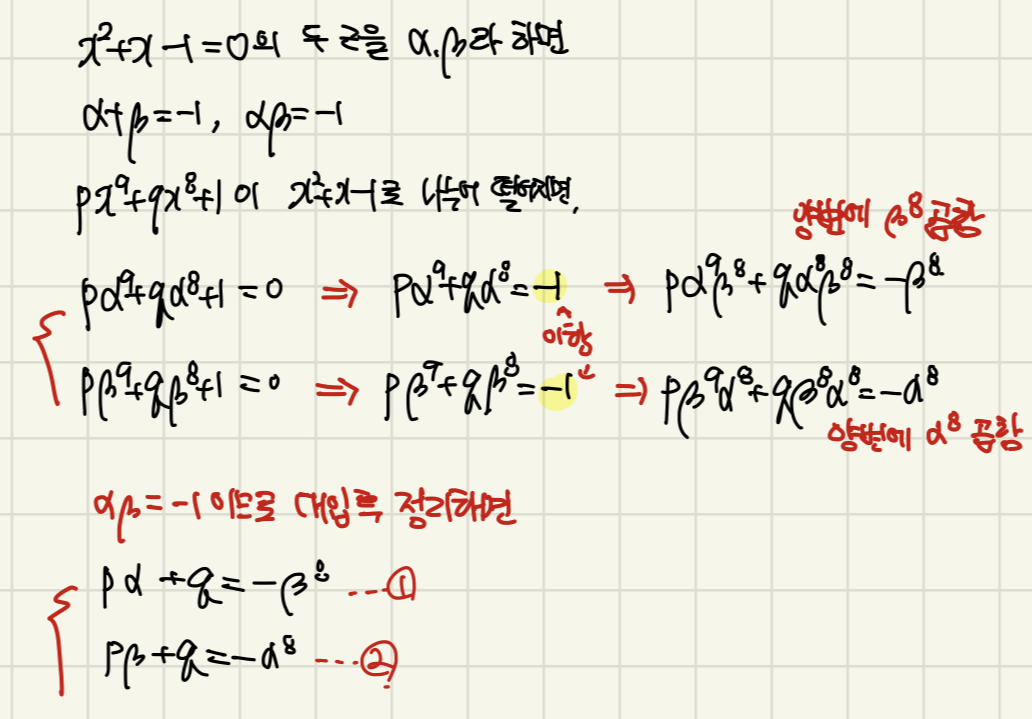 x²+x-1=0의 두 근을 α,β라 하면
α+β=-1, αβ=-1
px⁹+qx⁸+1이 x²+x-1로 나누어 떨어지면,
양변에 β⁸ 곱함
pα⁹+qα⁸+1=0 ⇒ pα⁹+qα⁸=-1 ⇒ pα⁹β⁸+qα⁸β⁸=-β⁸
이항
pβ⁹+qβ⁸+1=0 ⇒ pβ⁹+qβ⁸=-1 ⇒ pβ⁹α⁸+qβ⁸α⁸=-α⁸
양변에 α⁸ 곱함
αβ=-1이므로 대입후 정리하면
pα+q=-β⁸ ----①
pβ+q=-α⁸ ----②